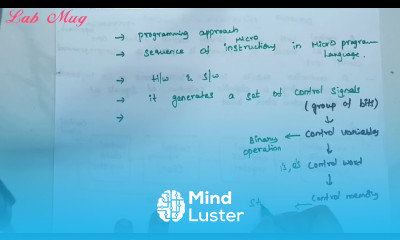 Lab Mug
→ programming approach
MICRO
→ sequence of instructions in MICRO program
Language.
→ H/w & S/w
→ it generates a set of control signals
(group of bits)
→ ↓
Binary ← control variables
operation ↓
1, 0's control word
↓
← control memory
Mind
Luster